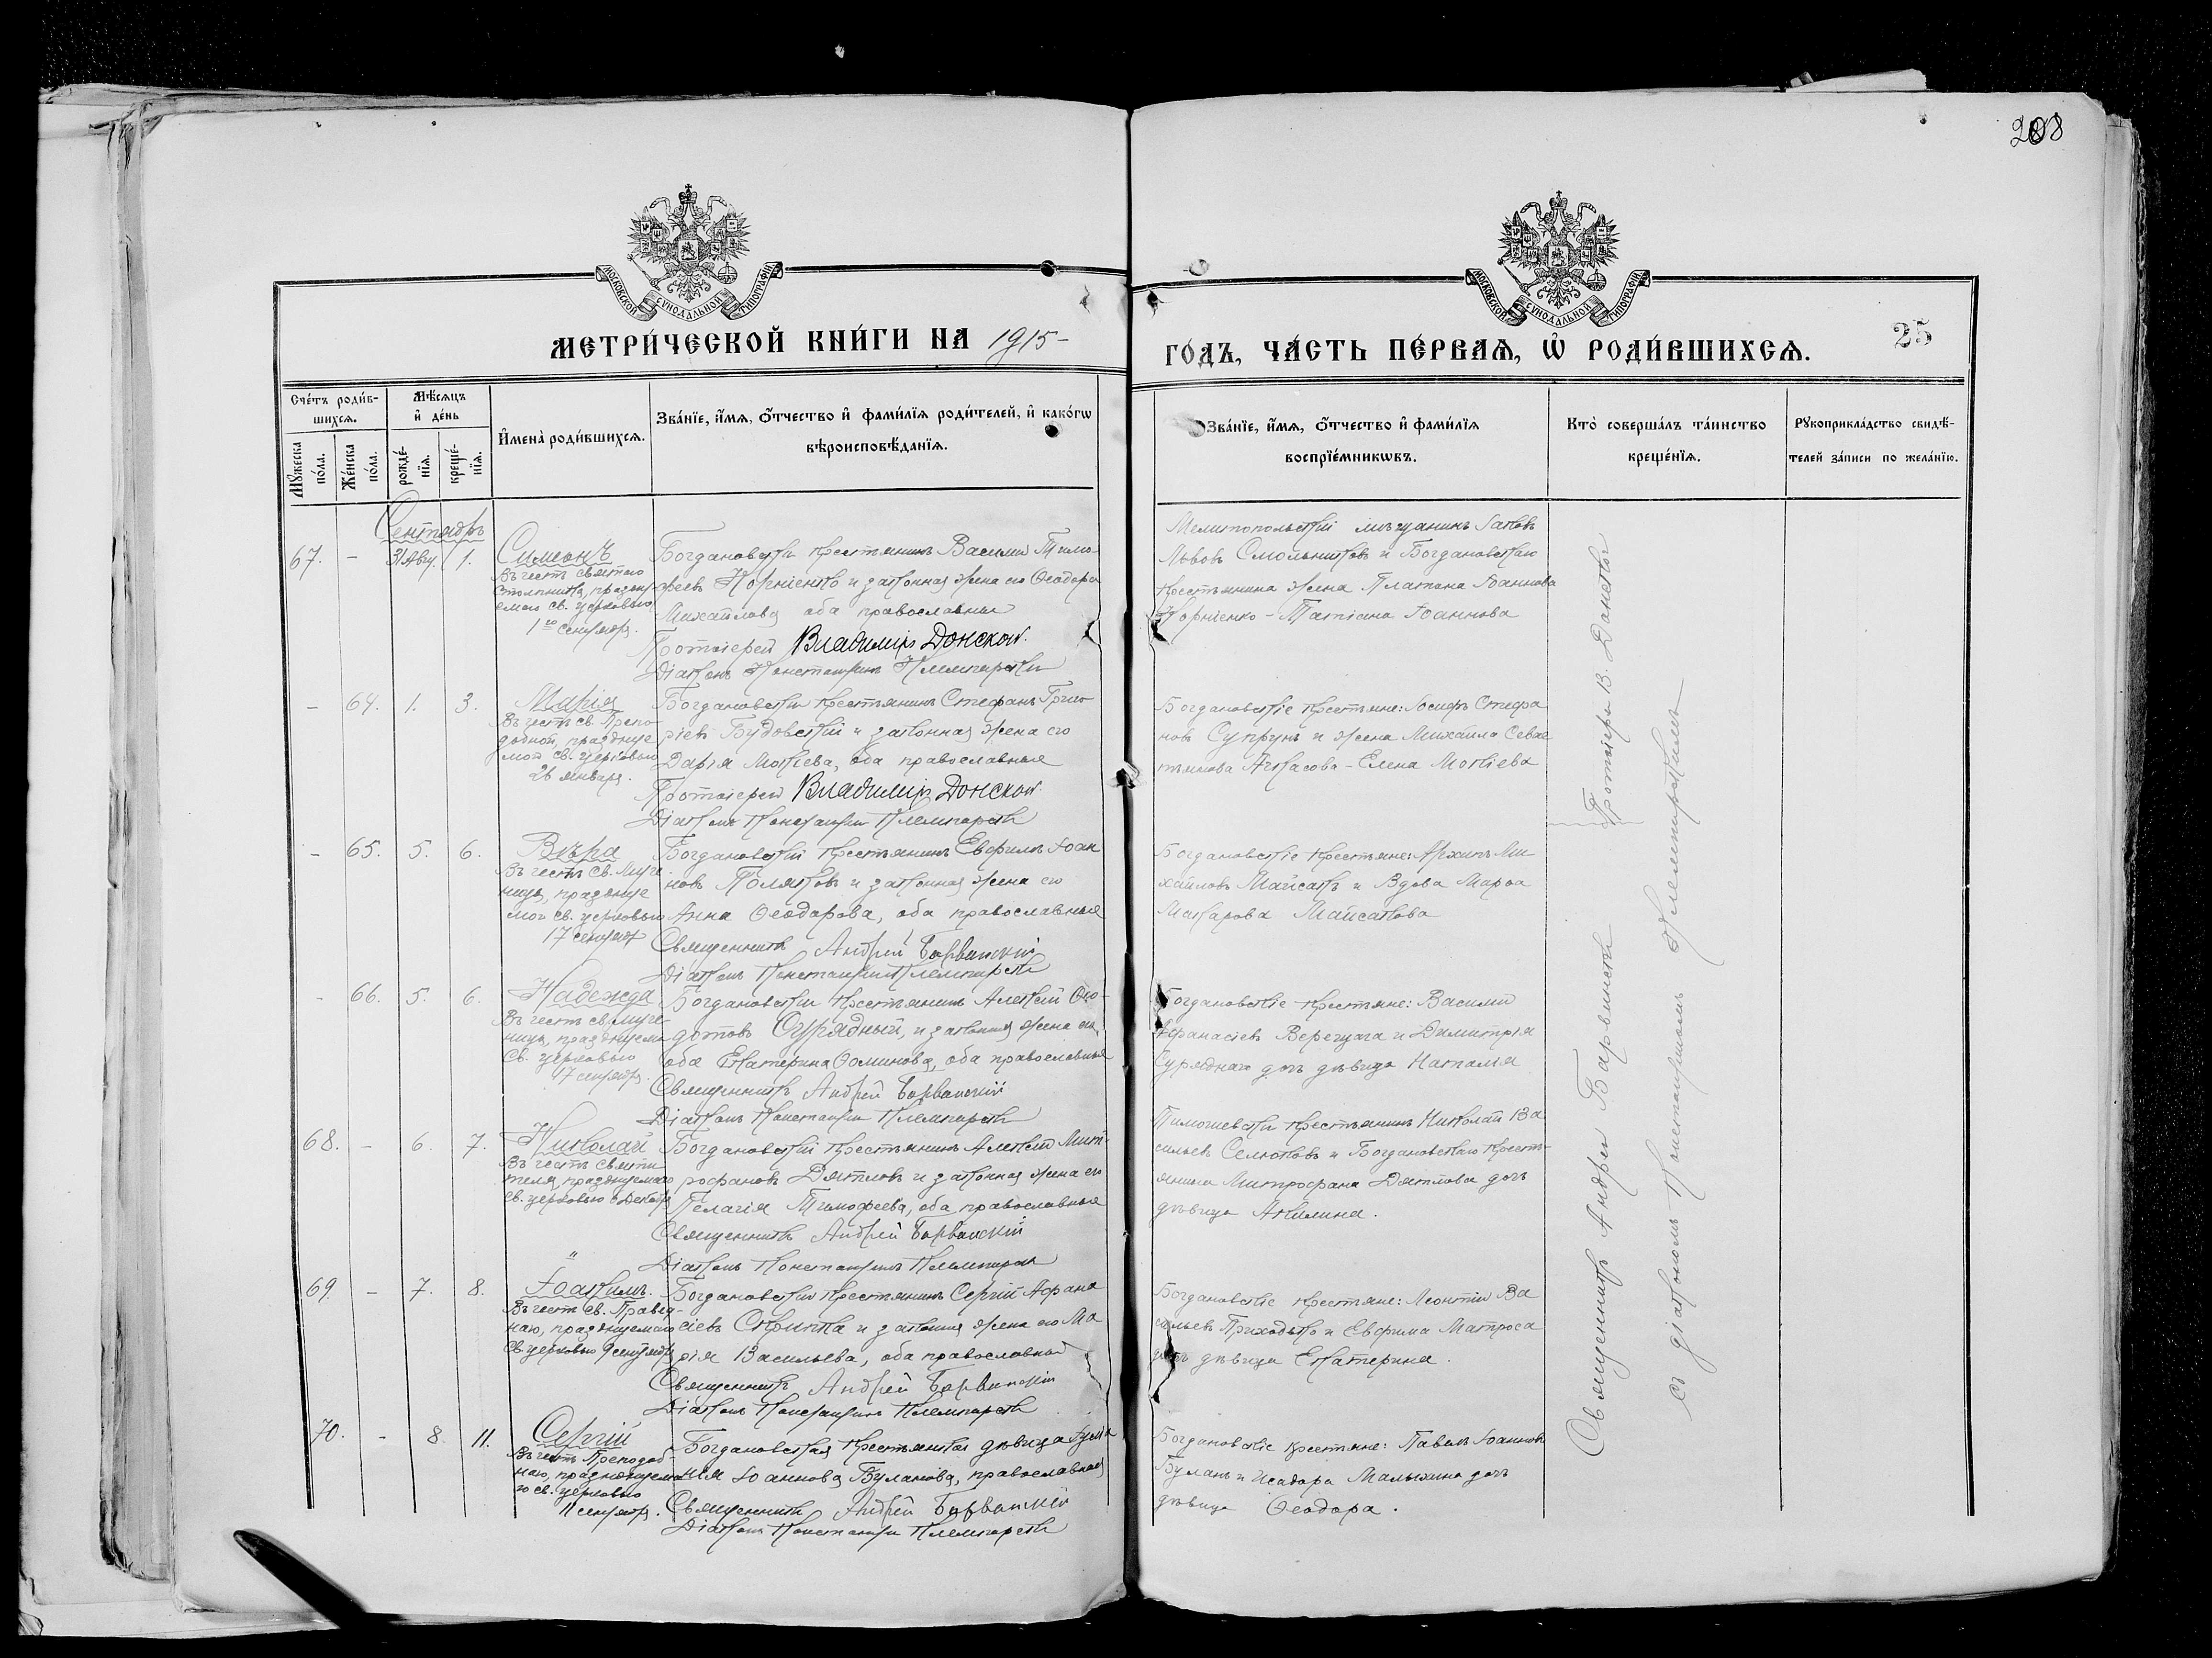 208
МОСКОВСКОЙ СУНОДАЛЬНОЙ ТИПОГРАФІИ
МЕТРИ́ЧЕСКОЙ КНИ́ГИ НА 1915-
МОСКОВСКОЙ СУНОДАЛЬНОЙ ТИПОГРАФІИ
ГО́ДЪ, ЧА́СТЬ ПЕ́РВАѦ, Ѡ҆ РОДИ́ВШИХСѦ.
25
Сче́тъ роди́в-
шихсѧ.
Мѣ́сѧцъ
и҆ де́нь
И҆мена̀ роди́вшихсѧ.
Зва́нїе, и҆́мѧ, о҆́тчество и҆ фами́лїѧ роди́телей, и҆ како́гѡ
вѣроисповѣ́данїѧ.
Мꙋ́жеска
по́ла.
Же́нска
по́ла.
рожде́-
нїѧ.
креще́-
нїѧ.
Зва́нїе, и҆́мѧ, о҆́тчество и҆ фами́лїѧ
воспрїе́мникѡвъ.
Кто̀ соверша́лъ та́инство
креще́нїѧ.
Рꙋкоприкла́дство свидѣ́-
телей за́писи по жела́нїю.
Сентябрь
67. - 31 Авг. 1. Симеонъ
Въ честь святаго
столпника, праздну-
емаго св. церковью
1го сентября.
Богдановскій крестьянинъ Василій Тимо-
феевъ Корніенко и законная жена его Ѳеодора
Михайлова оба православные
Протоіерей Владимір Донской.
Діаконъ Константинъ Клемпарскій
Мелитопольскій мѣщанинъ Іаковъ
Львовъ Смольниковъ и Богдановскаго
крестьянина жена Платона Іоаннова
Корніенко - Татіана Іоаннова
- 64. 1. 3. Марія
Въ честь св. Препо-
добной, празднуе
мой св. церковью
26 января.
Богдановскій крестьянинъ Стефанъ Григо-
ріевъ Будовскій и законная жена его
Дарія Мокіева, оба православные
Протоіерей Владимір Донской.
Діаконъ Константинъ Клемпарскій
Богдановскіе крестьяне: Іосифъ Стефа
новъ Супрунъ и жена Михаила Севас
тьянова Ачкасова - Елена Мокіева
- 65. 5. 6. Вѣра
Въ честь св. Муче
ницы, празднуе
мой св. церковью
17 сентяб
Богдановскій крестьянинъ Евфимъ Іоан
новъ Поляковъ и законная жена его
Анна Ѳеодорова, оба православные
Священникъ Андрей Барвинскій
Діаконъ Константинъ Клемпарскій
Богдановскіе крестьяне: Архипъ Ми-
хайловъ Майсакъ и Вдова Марѳа
Макарова Майсакова
- 66. 5. 6. Надежда
Въ честь св. муче-
ницы, празднуем.
св. церковью
17 сентября.
Богдановскій крестьянинъ Алексій Ѳео-
дотовъ Сурядный, и законная жена его
оба Екатерина Ѳоминова, оба православные
Священникъ Андрей Барвинскій
Діаконъ Константинъ Клемпарскій
Богдановскіе крестьяне: Василій
Аѳанасіевъ Верещага и Димитрія
Суряднаго дочь дѣвица Наталія
68. - 6. 7. Николай
Въ честь святи
теля, празднуемаго
св. церковью 6 декабр
Богдановскій крестьянинъ Алексій Мит-
рофановъ Дятловъ и законная жена его
Пелагія Тимофеева, оба православные
Священникъ Андрей Барвинскій
Діаконъ Константинъ Клемпарскій
Тимошевскій крестьянинъ Николай Ва
сильевъ Селюковъ и Богдановскаго кресть-
янина Митрофана Дятлова дочь
дѣвица Акилина.
69 - 7. 8. Іоакимъ.
Въ честь св. Правед-
наго, празднуемаго
св. церковью 9 сентября
Богдановскій крестьянинъ Сергій Аѳана
сіевъ Скрипка и законная жена его Ма
рія Васильева, оба православные
Священникъ Андрей Барвинскій
Діаконъ Константинъ Клемпарскій
Богдановскіе крестьяне: Леонтій Ва
сильевъ Приходько и Евфима Матроса
дочь дѣвица Екатерина.
70. - 8. 11. Сергій
Въ честь Преподоб-
наго, празднуемаго
св. церковью
11 сентябр.
Богдановская крестьянская дѣвица
Іоаннова Буланова, православная
Священникъ Андрей Барвинскій
Діаконъ Константинъ Клемпарскій
Богдановскіе крестьяне: Павелъ Іоанновъ
Буланъ и Исидора Малыхина дочь
дѣвица Ѳеодора.
Протоіерей В. Донской
Священникъ Андрей Барвинскій
съ діакономъ Константиномъ Клемпарскимъ